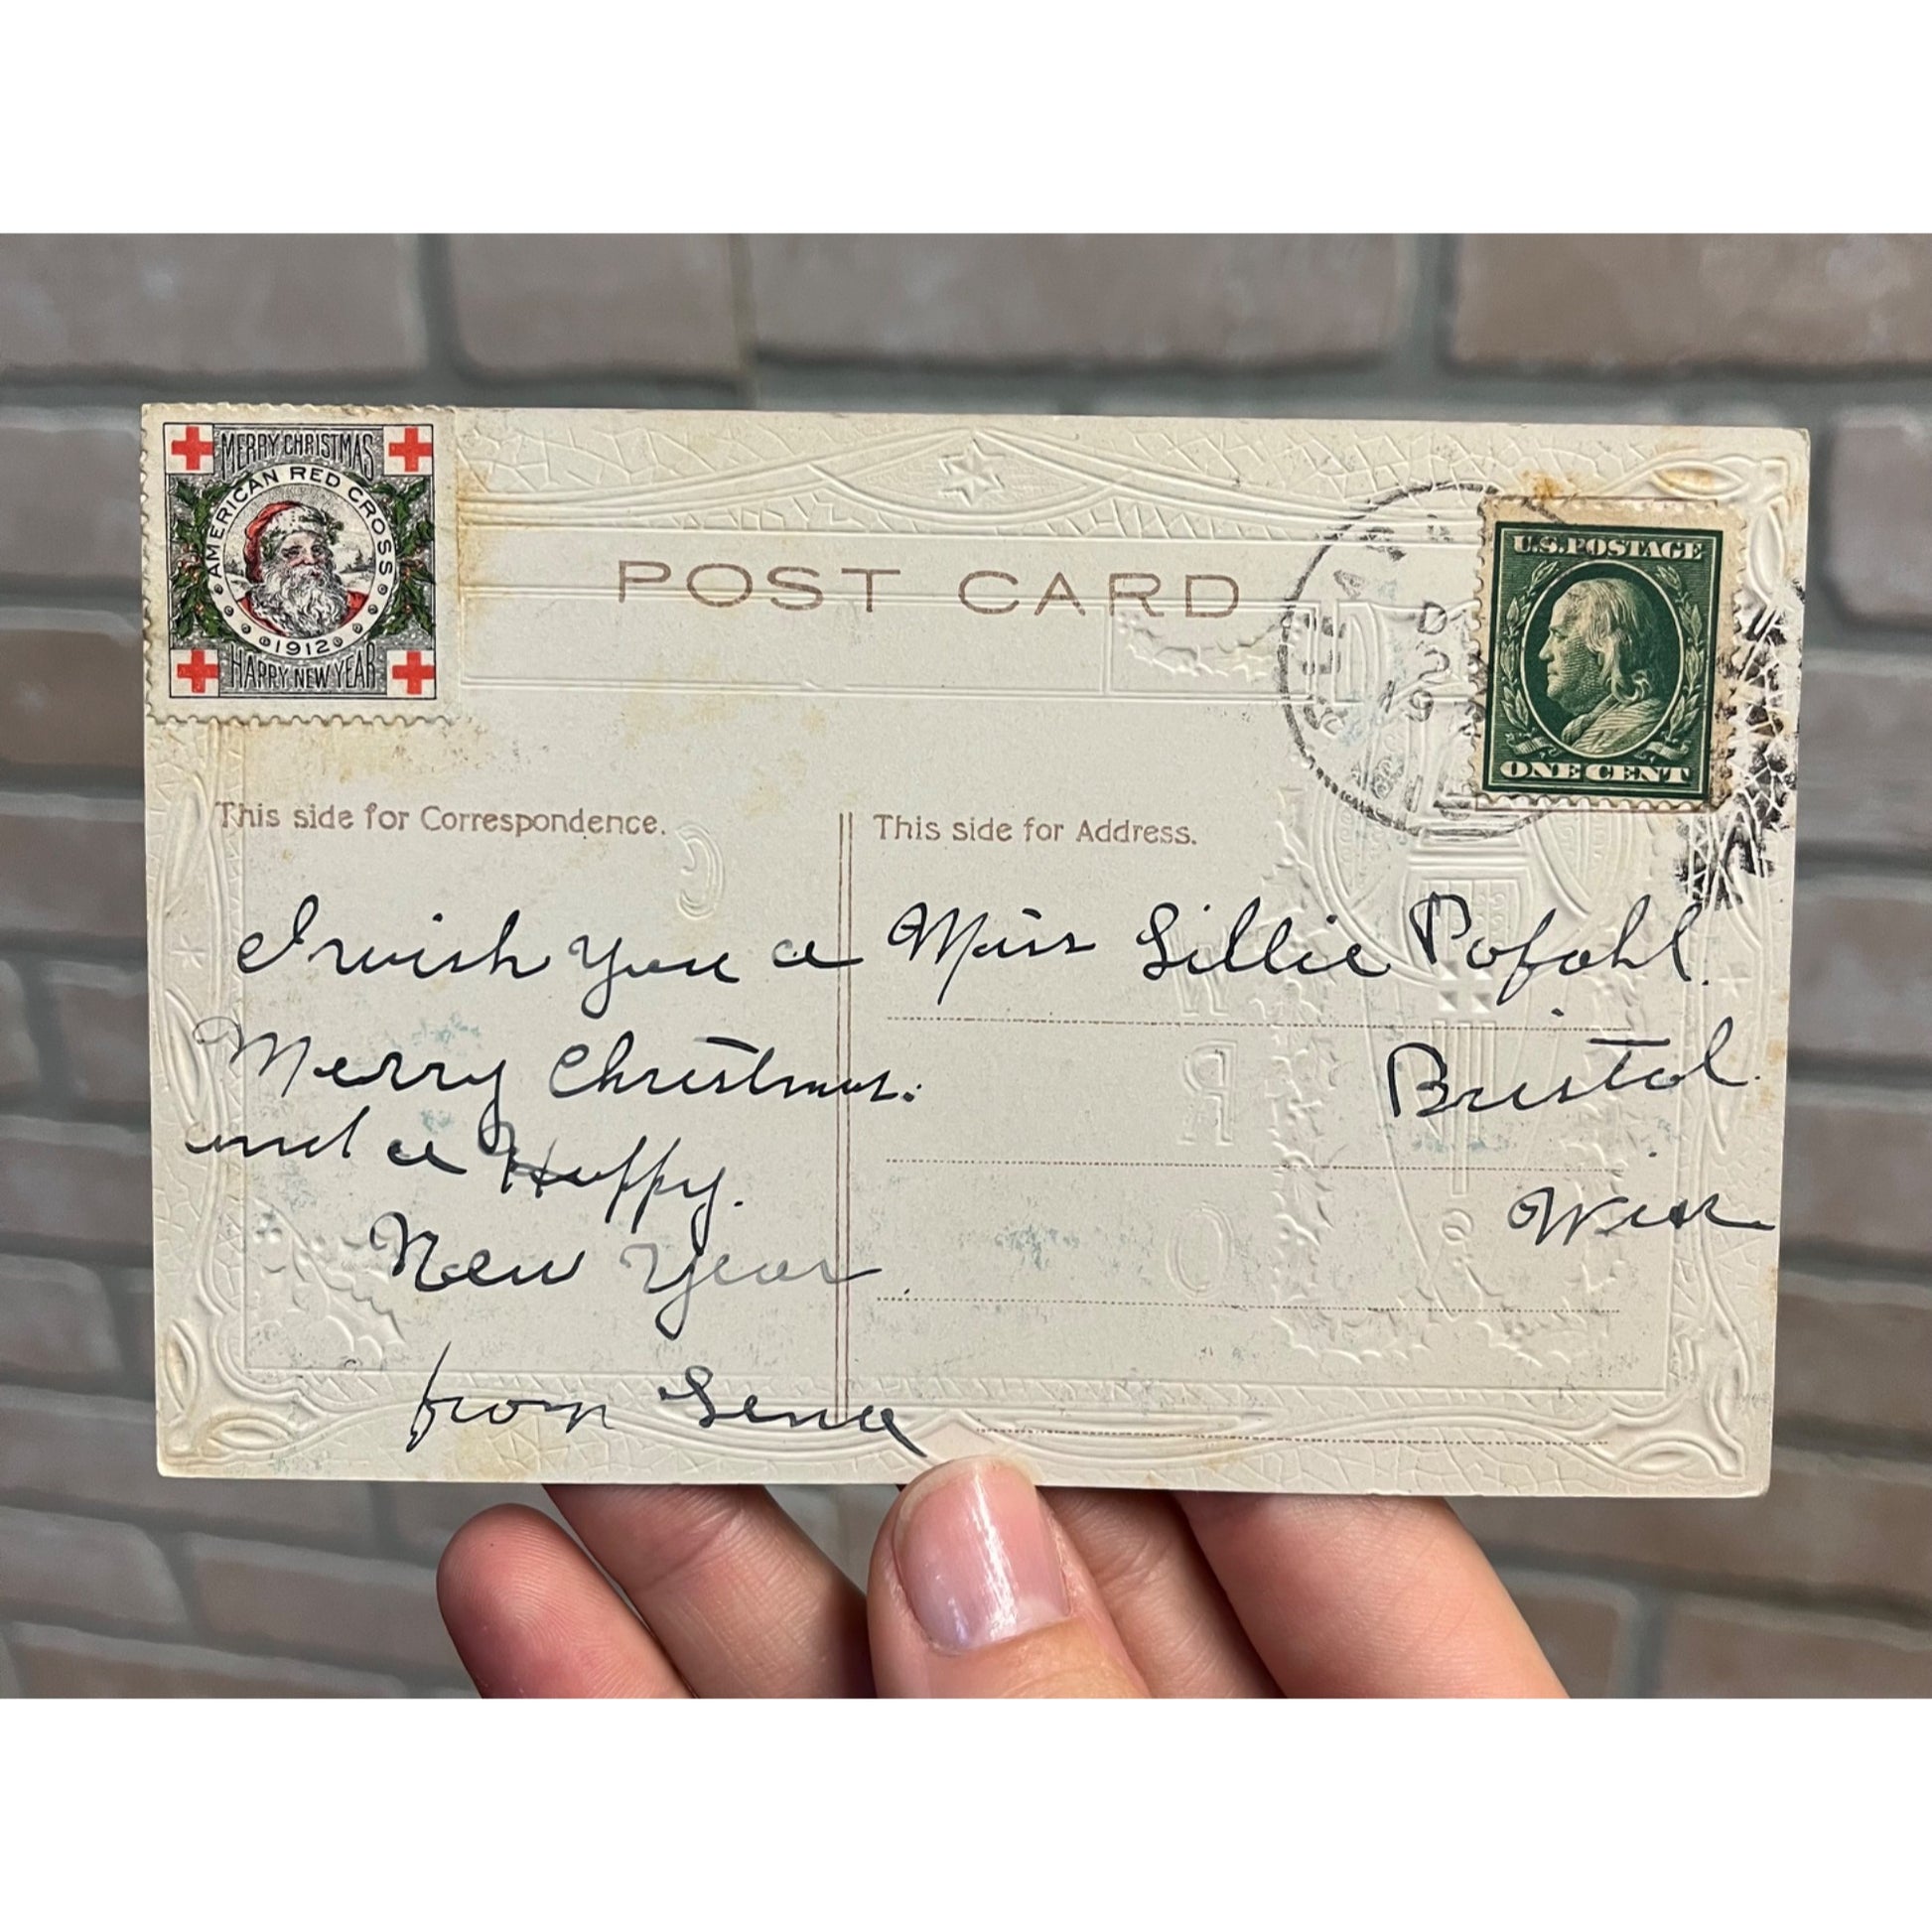 MERRY CHRISTMAS
AMERICAN RED CROSS
1912
HAPPY NEW YEAR
POST CARD
U.S. POSTAGE
ONE CENT
This side for Correspondence.
I wish you a
Merry Christmas.
and a Happy.
New Year.
from Lena
This side for Address.
Miss Lillie Pofahl.
Bristol.
Wis